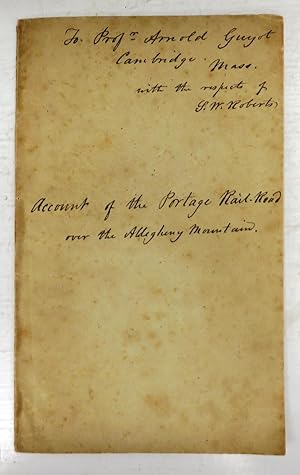 To Profr. Arnold Guyot
Cambridge. Mass.
with the respects of
S. W. Roberts,
Account of the Portage Rail-Road
over the Allegheny Mountain.